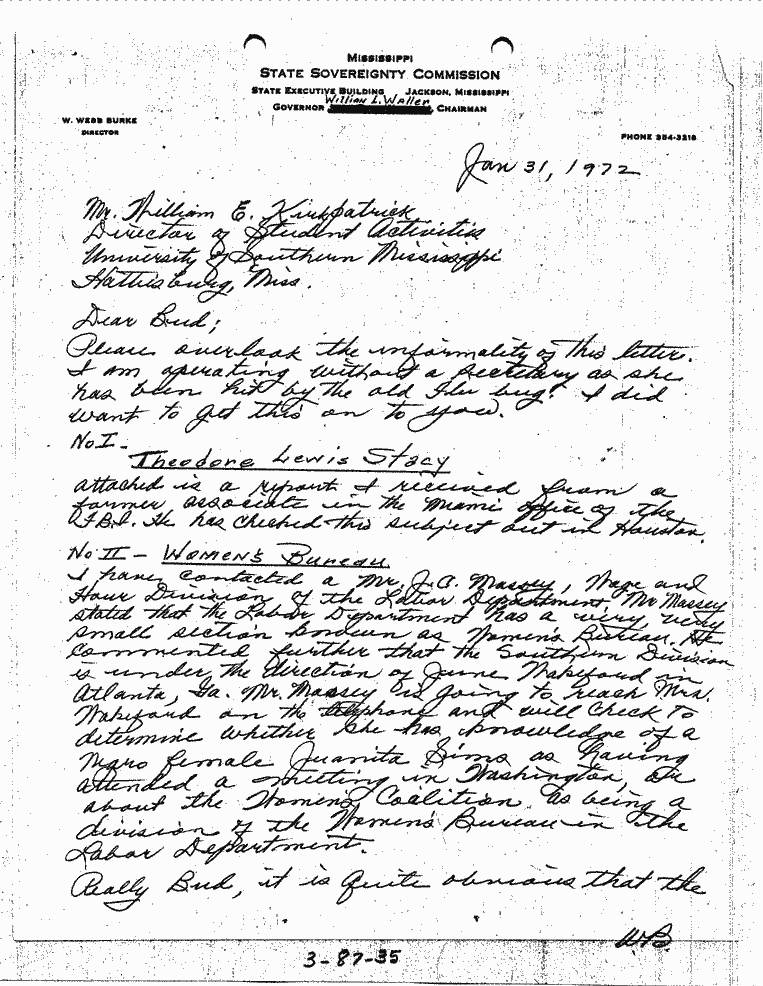 MISSISSIPPI
STATE SOVEREIGNTY COMMISSION
STATE EXECUTIVE BUILDING JACKSON, MISSISSIPPI
William L. Waller
GOVERNOR , CHAIRMAN
W. WEBB BURKE
DIRECTOR
PHONE 354-3218
Jan 31, 1972
Mr. William E. Kirkpatrick
Director of Student Activities
University of Southern Mississippi
Hattiesburg, Miss.
Dear Bud;
Please overlook the informality of this letter.
I am operating without a secretary as she
has been hit by the old Flu bug. I did
want to get this on to you.
No I -
Theodore Lewis Stacy
Attached is a report I received from a
former associate in the Miami office of the
F.B.I. He has checked this subject out in Houston.
No II - Women's Bureau
I have contacted a Mr. J.A. Massey, Wage and
Hour Division of the Labor Department. Mr Massey
stated that the Labor Department has a very, very
small section known as Women's Bureau. He
commented further that the Southern Division
is under the direction of June Wakeford in
Atlanta, Ga. Mr. Massey is going to reach Mrs.
Wakeford on the telephone and will check to
determine whether she has knowledge of a
Negro female Juanita Sims as having
attended a meeting in Washington, or
about the Women's Coalition as being a
division of the Women's Bureau in the
Labor Department.
Really Bud, it is quite obvious that the
WB
3-87-35